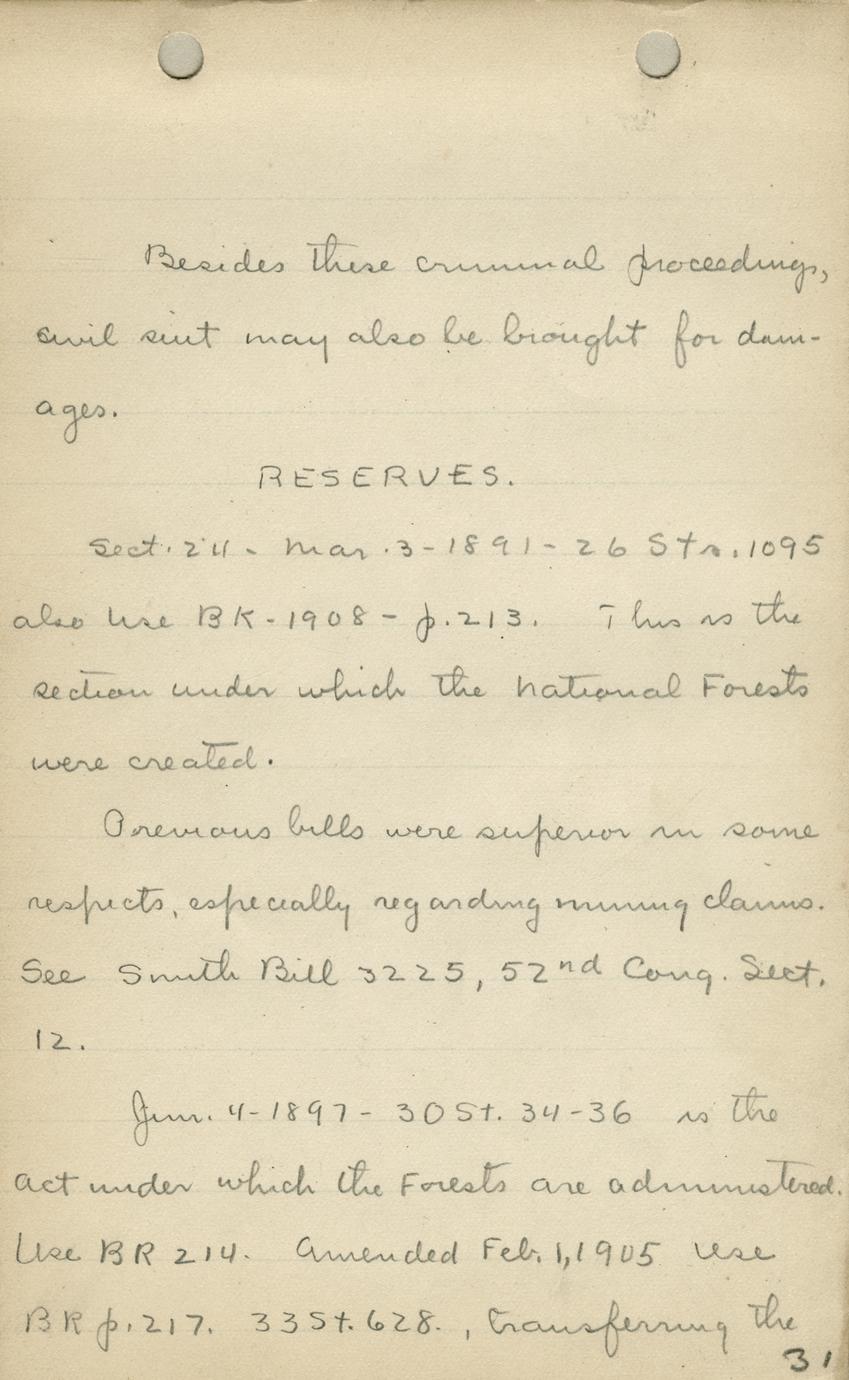 Besides these criminal proceedings,
civil suit may also be brought for dam-
ages.
RESERVES.
Sect. 24 - Mar. 3 - 1891 - 26 Sts. 1095
also Use BK - 1908 - p. 213. This is the
section under which the National Forests
were created.
Previous bills were superior in some
respects, especially regarding mining claims.
See Smith Bill 3225, 52nd Cong. Sect.
12.
Jun. 4 - 1897 - 30 St. 34-36 is the
act under which the Forests are administered.
Use BK 214. Amended Feb. 1, 1905 Use
BK p. 217. 33 St. 628. , transferring the
31